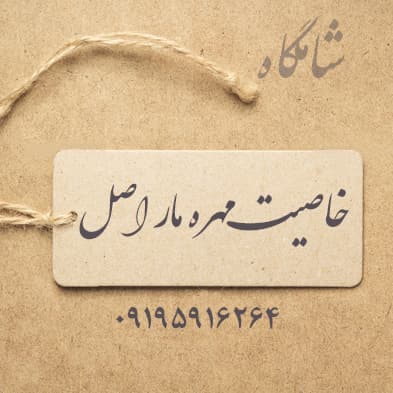 شامگاه
خاصیت مهره مار اصل
۰۹۱۹۵۹۱۶۲۶۴